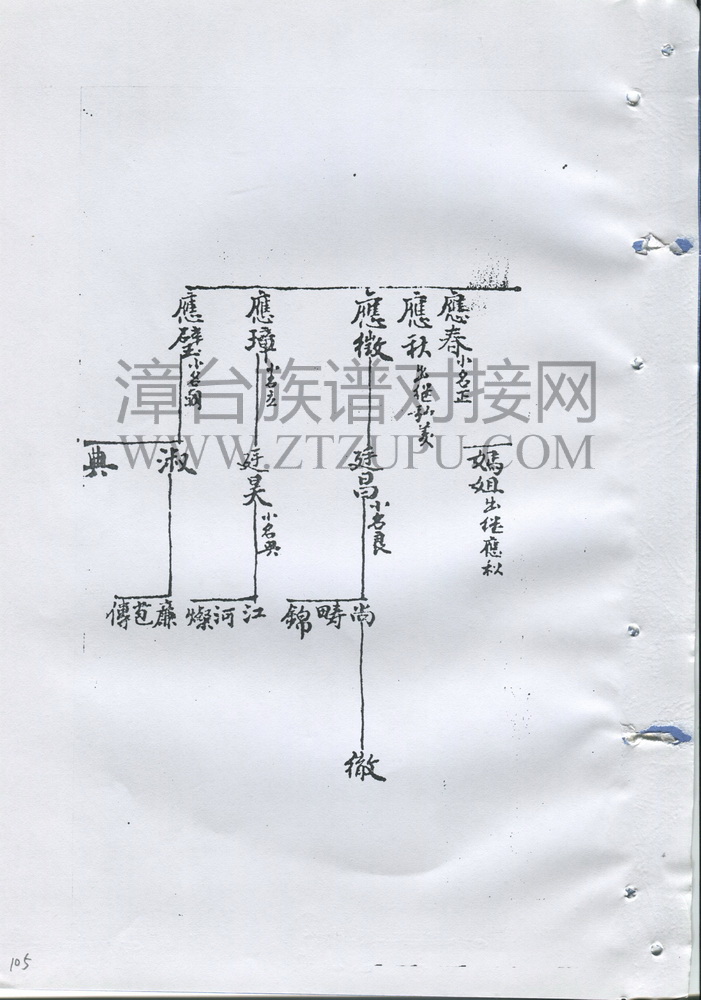 應春小名正
應秋出继弘美
應徵
應璋小名立
應璧小名朝
媽姐出继應秋
廷昌小名良
廷昊小名興
淑
典
尚
疇
錦
江
河
燦
廉
苞
傳
徹
漳台族谱对接网
WWW.ZTZUPU.COM
105